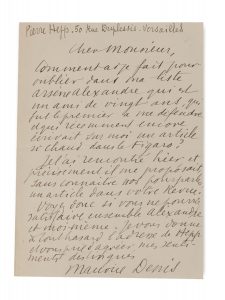 Pierre Hepp. 50 Rue Duplessis. Versailles
Cher Monsieur,
Comment ai-je fait pour
oublier dans ma liste
arsène alexandre qui est
un ami de vingt ans, qui
fut le premier à me défendre
et qui récemment encore
écrivait sur moi un article
si chaud dans le Figaro?
Je l'ai rencontré hier et
précisément il me proposait
sans connaître nos pourparlers
un article dans votre Revue.
Voyez donc si vous ne pourriez
satisfaire ensemble Alexandre
et moi même. Je vous donne
à tout hasard l'adresse de Hepp
et vous prie d'agréer mes senti-
ments distingués
Maurice Denis